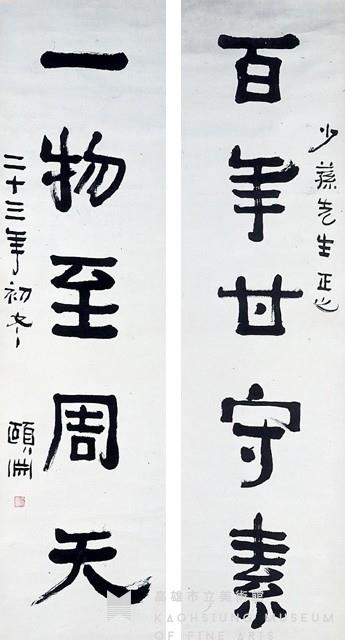 少蓀先生正之
百年甘守素
一物至周天
二十三年初冬
頤淵
高雄市立美術館
KAOHSIUNG MUSEUM
OF FINE ARTS